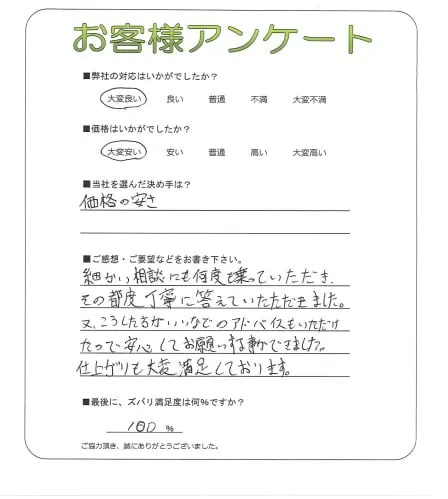 お客様アンケート
■弊社の対応はいかがでしたか？
大変良い 良い 普通 不満 大変不満
■価格はいかがでしたか？
大変安い 安い 普通 高い 大変高い
■当社を選んだ決め手は？
価格の安さ
■ご感想・ご要望などをお書き下さい。
細かい相談にも何度も乗っていただき、
その都度丁寧に答えていただきました。
又、こうした方がいいなどのアドバイスもいただけ
たので安心してお願いする事ができました。
仕上がりも大変満足しております。
■最後に、ズバリ満足度は何%ですか？
100 %
ご協力頂き、誠にありがとうございました。